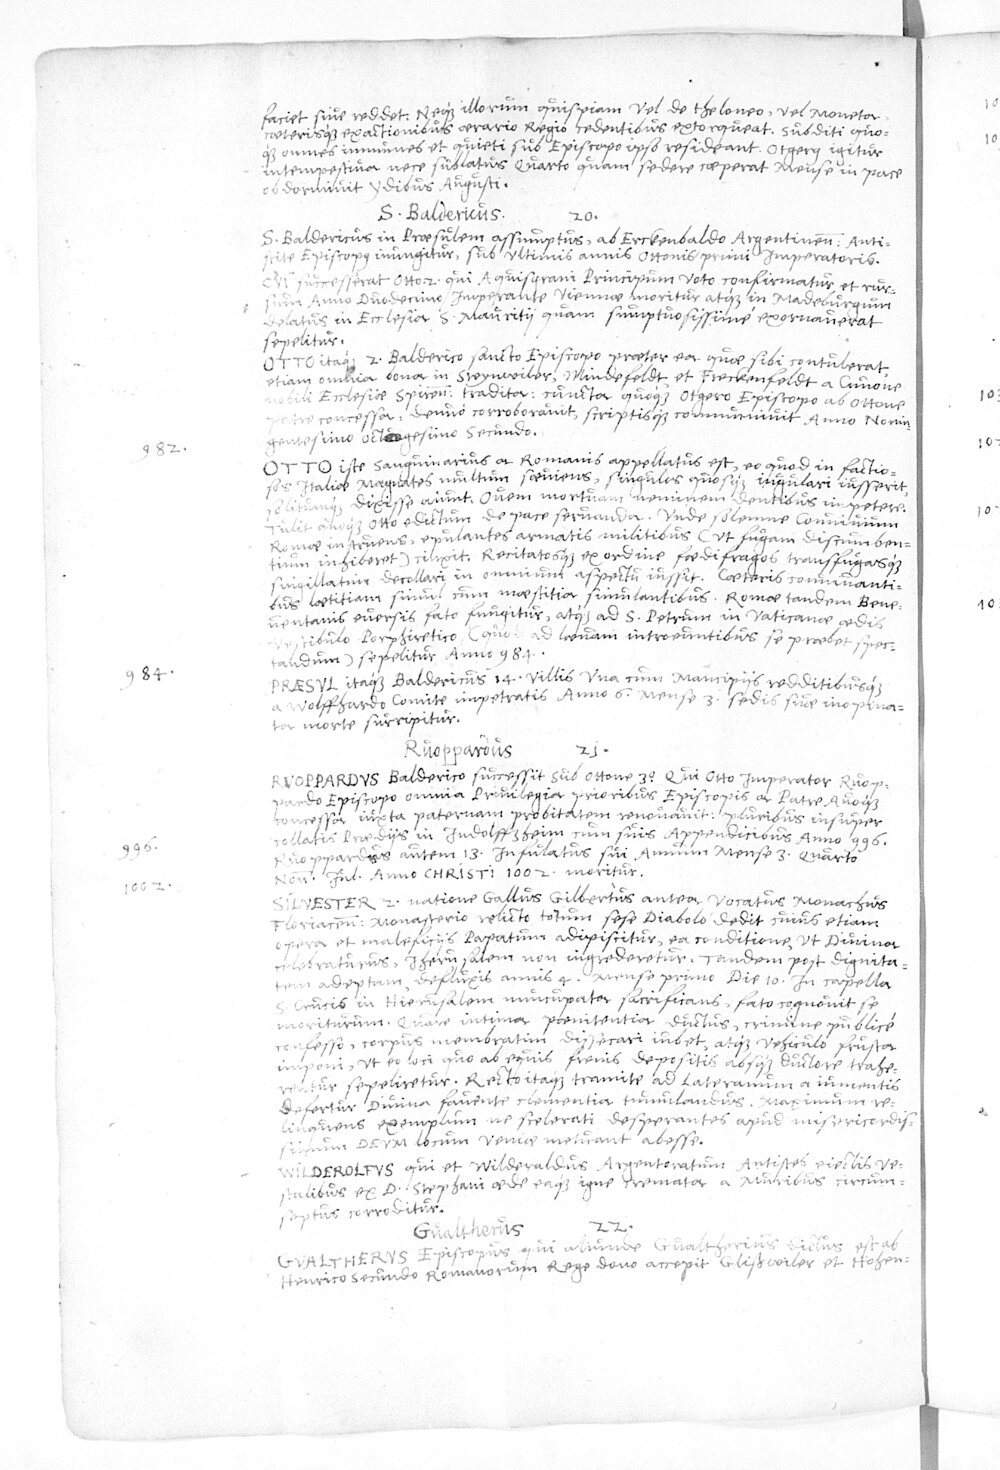 faciet siue reddet. Neq3 illorum quispiam vel de theloneo, vel Moneta,
cæterisq3 exactionibus ærario Regio cedentibus extorqueat. Subditi quo=
q3 omnes immunes et quieti sub Episcopo ipso resideant. Otgerq igitur
intempestiua nece sublatus Quarto quam sedere cœperat Mense in pace
obdormiuit Ydibus Augusti.
S. Baldericus. 20.
S. Baldericus in Præsulem assumptus, ab Erckenbaldo Argentinen: Anti=
stite Episcopq inungitur, sub ultimis annis Ottonis primi Imperatoris.
Cui successerat Otto 2. qui Aquisgrani Principum voto confirmatur et rur=
sum Anno Duodecimo Imperante Viennæ moritur atq3 in Madeburgum
delatus in Ecclesia S. Mauritij quam sumptuosissimè exornauerat
sepelitur.
OTTO itaq3 2. Balderico sancto Episcopo præter ea quæ sibi contulerat,
etiam omnia bona in Steynweiler, Mindefeldt, et Freckenfeldt a Cunone
nobili Ecclesiæ Spiren: tradita: cuncta quoq3 Otgero Episcopo ab Ottone
patre concessa, denuo corroborauit, scriptisq3 communiuit Anno Nonin=
gentesimo Octogesimo Secundo.
982.
OTTO iste Sanguinarius a Romanis appellatus est, eo quod in factio=
sos Italiæ Magnates multum sæuiens, singulos quosq3 iugulari iusserit,
solitumq3 dixisse aiunt. Ouem mortuam neminem dentibus impetere.
Tulit quoq3 Otto edictum de pace seruanda. Unde solemne Conuiuium
Romæ instruens, epulantes armatis militibus (ut fugam discumben=
tium inhiberet) cinxit. Recitatosq3 ex ordine fœdifragos transfugasq3
singillatim decollari in omnium aspectu iussit. Cæteris conuiuanti=
bus lætitiam simul cum mæstitia simulantibus. Romæ tandem Bene=
uentanis euersis fato fungitur, atq3 ad S. Petrum in Vaticanæ ædis
vestibulo Porphiretico (quod ad læuam introeuntibus se præbet spec=
tandum) sepelitur Anno 984.
984.
PRÆSUL itaq3 Baldericus 14. Villis Una cum Mancipijs redditibusq3
a Wolffhardo Comite impetratis Anno 6. Mense 3. sedis suæ inopina=
ta morte surripitur.
Ruoppardus 21.
RUOPPARDVS Balderico successit sub Ottone 3o Qui Otto Imperator Ruop=
pardo Episcopo omnia Priuilegia prioribus Episcopis a Patre Auoq3
concessa iuxta paternam probitatem renouauit: pluribus insuper
collatis Prædijs in Indolffzheim cum suis Appendicibus Anno 996.
996.
Ruoppardus autem 13. Infulatus sui Annum Mense 3. Quarto
Non. Jul. Anno CHRISTI 1002. moritur.
1002.
SILVESTER 2. natione Gallus Gilbertus antea vocatus Monachus
Floriacen: Monasterio relicto totum sese Diabolo dedit cuius etiam
opera et maleficijs Papatum adipiscitur, ea conditione, ut Diuina
celebraturus, Iherusalem non ingrederetur. Tandem post dignita=
tem adeptam, defluxis annis 4. Mense primo Die 10. In capella
S. Crucis in Hierusalem nuncupata sacrificans, fato cognouit se
moriturum. Quare intima pœnitentia ductus, crimine publicè
confesso, corpus membratim dissecari iubet, atq3 vehiculo frusta
imponi, ut eo loci quo ab equis frenis depositis absq3 ductore trahe=
rentur sepeliretur. Recto itaq3 tramite ad Lateranum a iumentis
defertur Diuina fauente clementia tumulandus. Maximum re=
linquens exemplum ne scelerati desperantes apud misericordis=
simum DEVM locum veniæ meluant abesse.
WILDEROLFVS qui et Wilderaldus Argentoratum Antistes eiectis ve=
stalibus ex D. Stephani æde eaq3 igne cremata a Muribus circum=
septus corroditur.
Gualtherus 22.
GUALTHERVS Episcopus qui aliunde Gualtherius dictus est ab
Henrico Secundo Romanorum Rege dono accepit Glißweiler et Hohen=